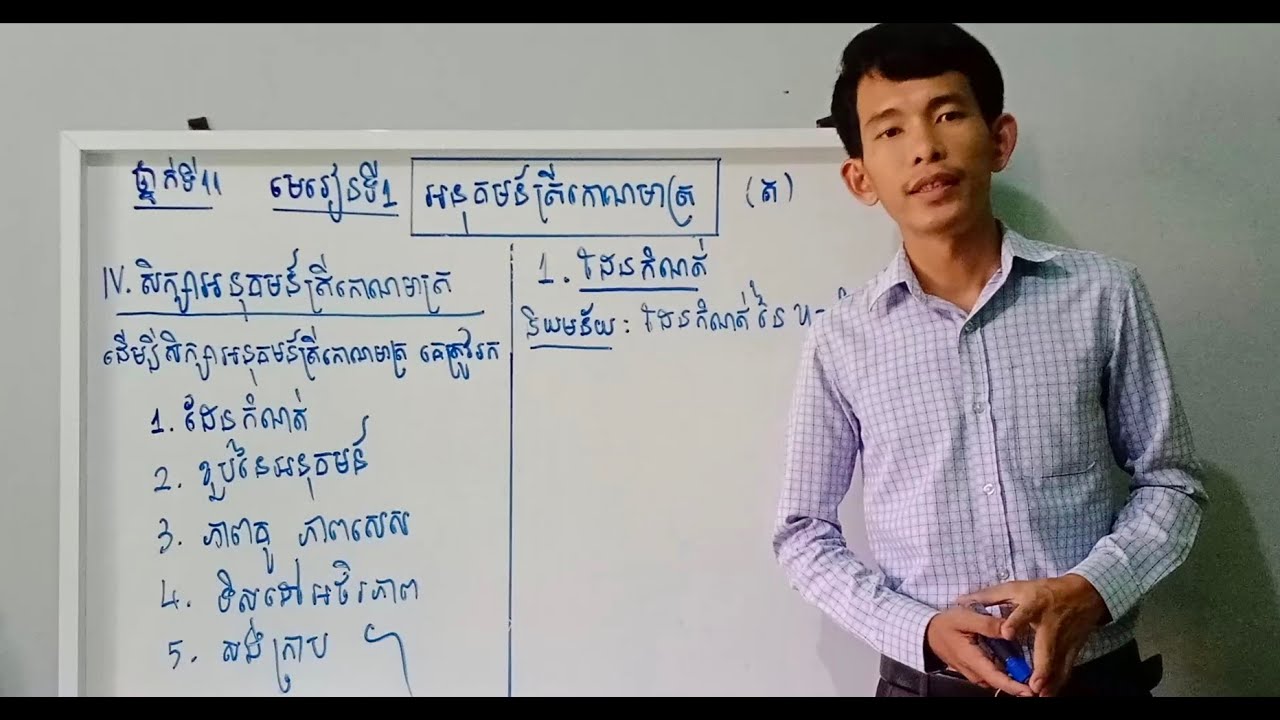 ថ្នាក់ទី11 មេរៀនទី1 អនុគមន៍ត្រីកោណមាត្រ (ត)
IV. សិក្សាអនុគមន៍ត្រីកោណមាត្រ
ដើម្បីសិក្សាអនុគមន៍ត្រីកោណមាត្រ គេត្រូវរក
1. ដែនកំណត់
2. ខួបនៃអនុគមន៍
3. ភាពគូ ភាពសេស
4. ទិសដៅអថេរភាព
5. សង់ក្រាប ។
1. ដែនកំណត់
និយមន័យ : ដែនកំណត់ នៃ